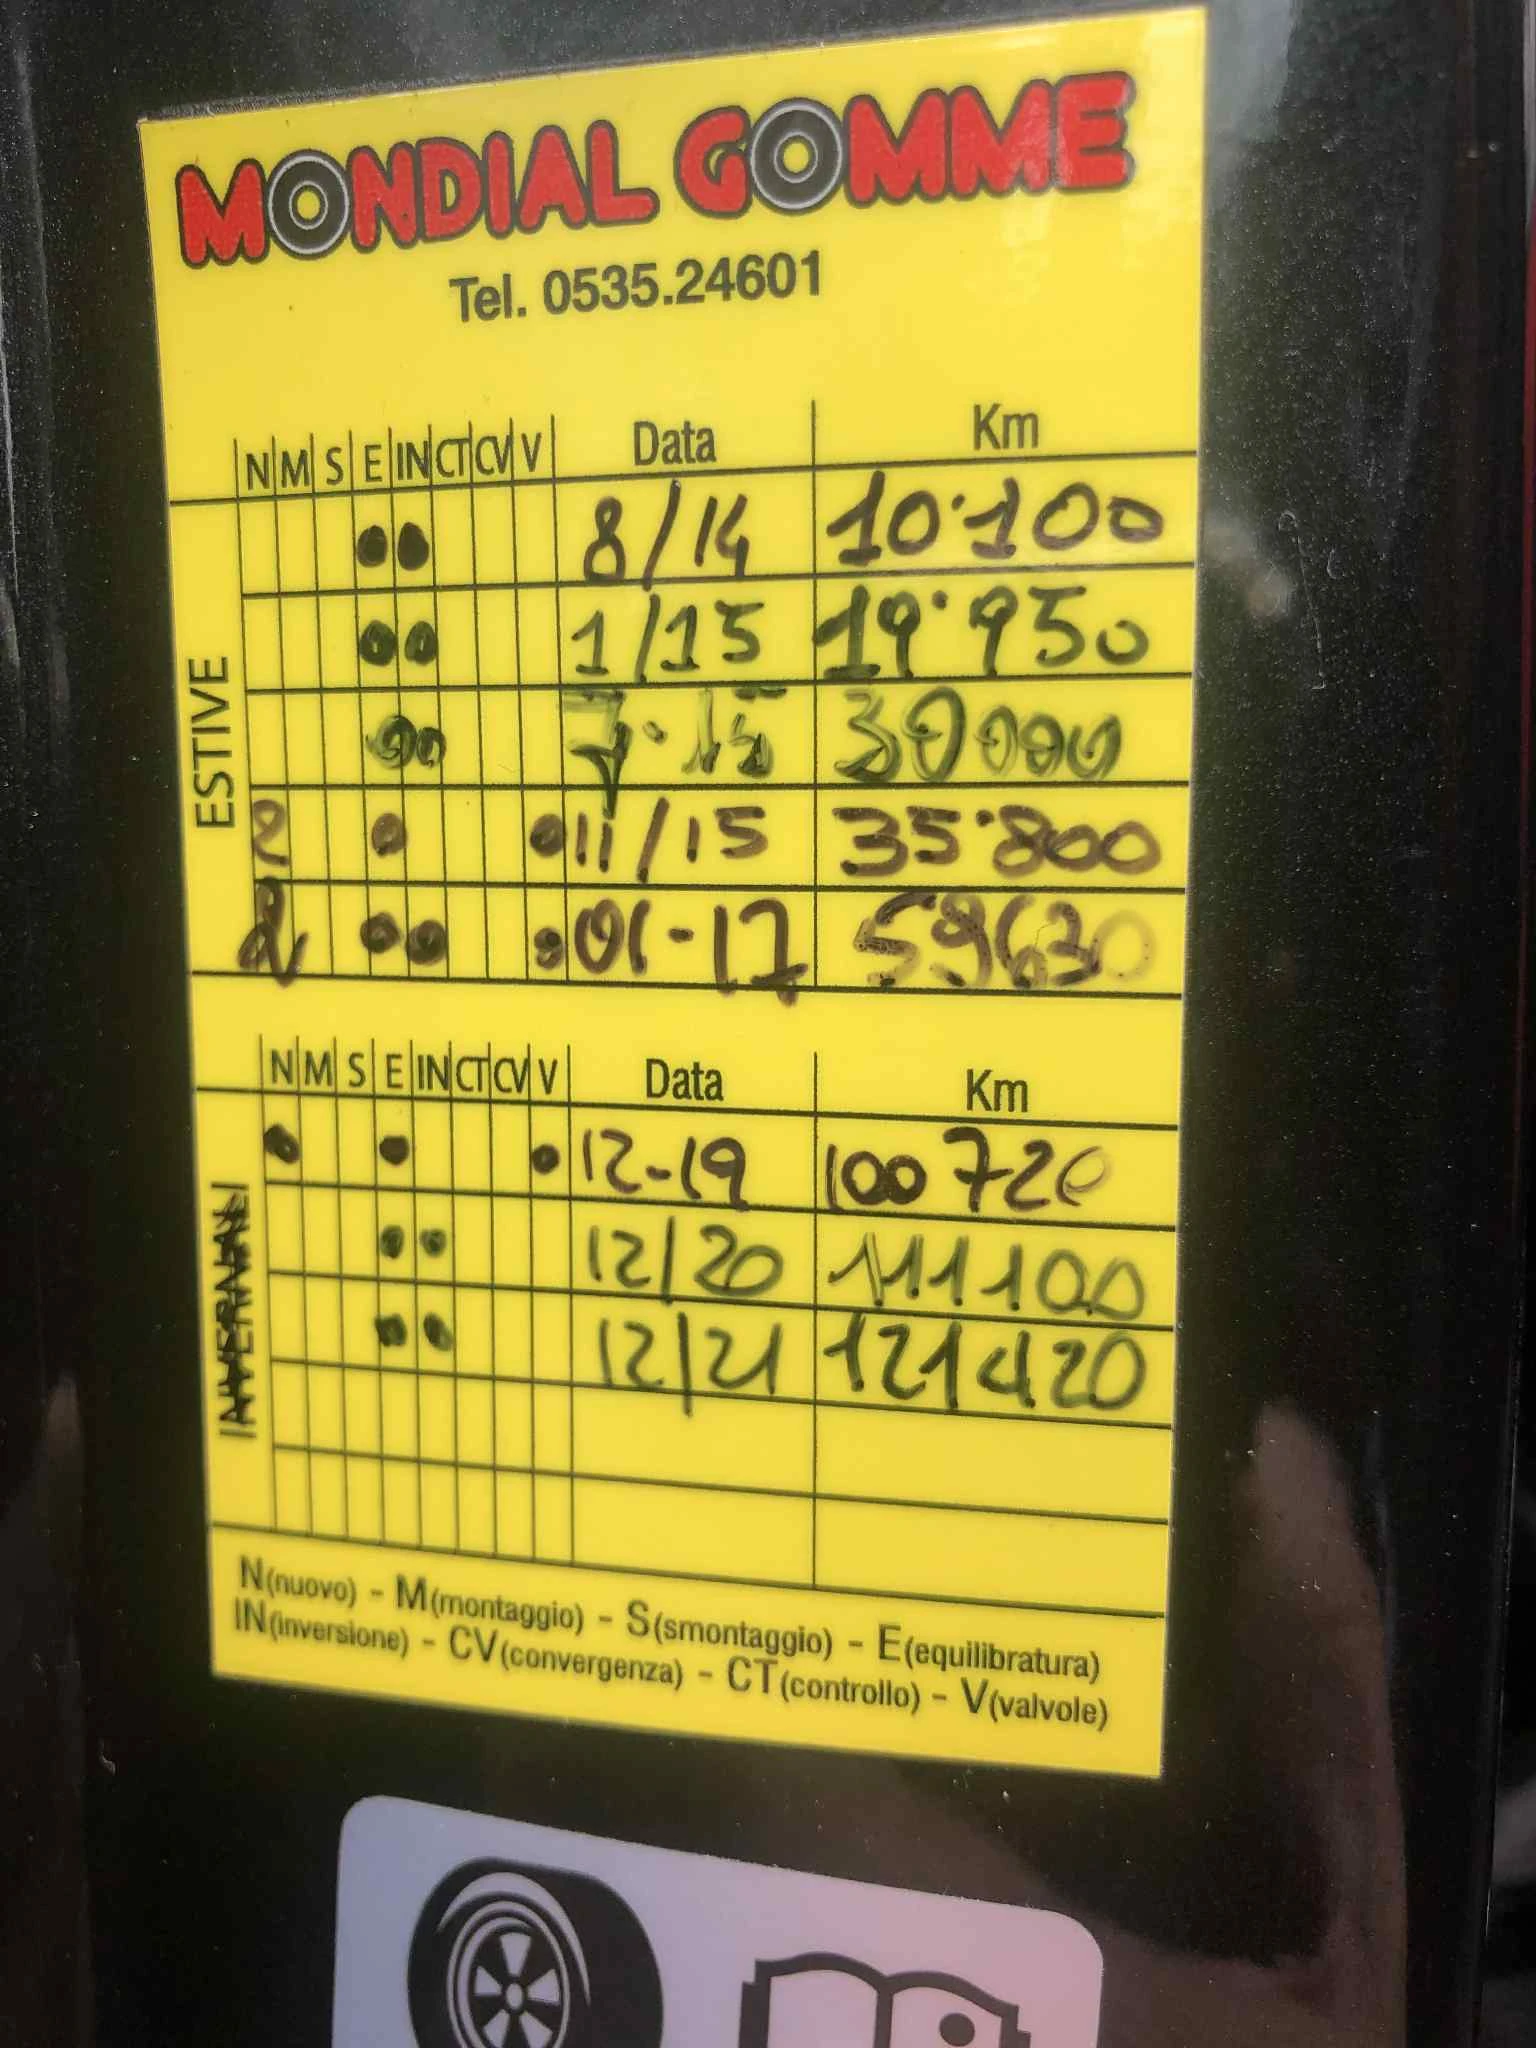 MONDIAL GOMME
Tel. 0535.24601
N M S E IN CT CV V Data Km
ESTIVE
●● 8/14 10·100
●● 1/15 19·950
●● 7·15 30000
2 ● ● 11/15 35·800
2 ●● ● 01-17 59630
N M S E IN CT CV V Data Km
INVERNALI
● ● ● 12-19 100720
●● 12/20 111100
●● 12/21 121420
N(nuovo) - M(montaggio) - S(smontaggio) - E(equilibratura)
IN(inversione) - CV(convergenza) - CT(controllo) - V(valvole)